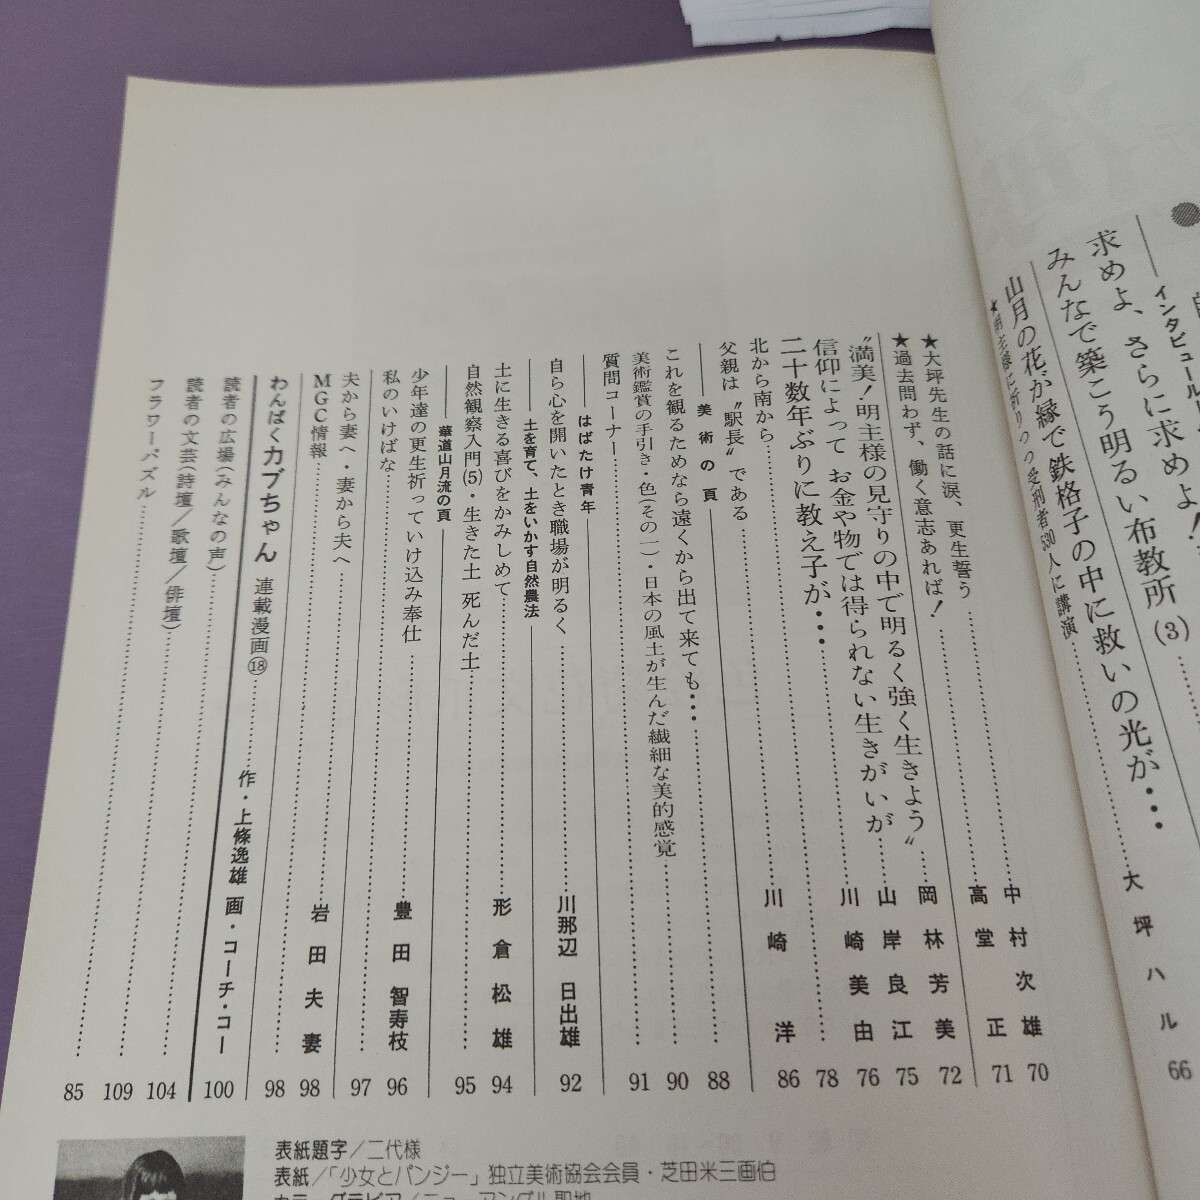 インタビュール
求めよ、さらに求めよ！
みんなで築こう明るい布教所(3)
山月の花が縁で鉄格子の中に救いの光が・・・ 大坪ハル 66
★明主様に祈りつつ受刑者530人に講演
★大坪先生の話に涙、更生誓う 中村次雄 70
★過去問わず、働く意志あれば！ 高堂正 71
〝満美！明主様の見守りの中で明るく強く生きよう〟 岡林芳美 72
信仰によって お金や物では得られない生きがいが 山岸良江 75
二十数年ぶりに教え子が・・・ 川崎美由 76
北から南から 78
父親は〝駅長〟である 川崎洋 86
美術の頁
これを観るためなら遠くから出て来ても・・・ 88
美術鑑賞の手引き・色(その一)・日本の風土が生んだ繊細な美的感覚 90
質問コーナー 91
はばたけ青年
自ら心を開いたとき職場が明るく 川那辺日出雄 92
土を育て、土をいかす自然農法
土に生きる喜びをかみしめて 形倉松雄 94
自然観察入門(5)・生きた土 死んだ土 95
華道山月流の頁
少年達の更生祈っていけ込み奉仕 豊田智寿枝 96
私のいけばな 97
夫から妻へ・妻から夫へ 岩田夫妻 98
MGC情報 98
わんぱくカブちゃん 連載漫画⑱ 作・上條逸雄 画・コーチ・コー 100
読者の広場(みんなの声) 104
読者の文芸(詩壇／歌壇／俳壇) 109
フラワーパズル 85
表紙題字／二代様
表紙／「少女とパンジー」独立美術協会会員・芝田米三画伯
カラーグラビア／ニューアングル聖地